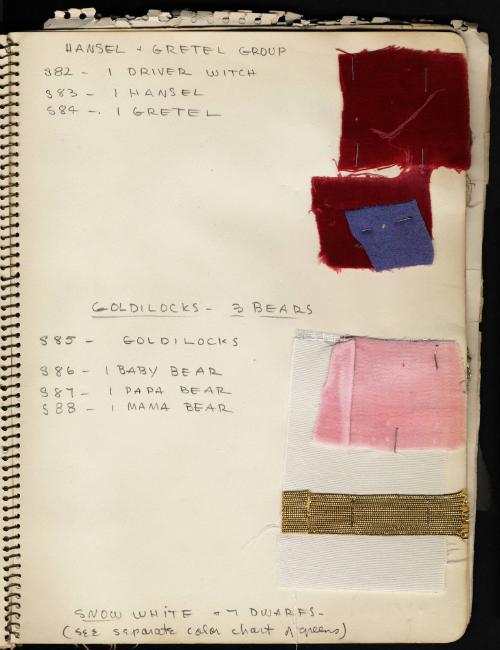 HANSEL + GRETEL GROUP
S82 - 1 DRIVER WITCH
S83 - 1 HANSEL
S84 -. 1 GRETEL
GOLDILOCKS - 3 BEARS
S85 - GOLDILOCKS
S86 - 1 BABY BEAR
S87 - 1 PAPA BEAR
S88 - 1 MAMA BEAR
SNOW WHITE + 7 DWARFS -
(see separate color chart of greens)